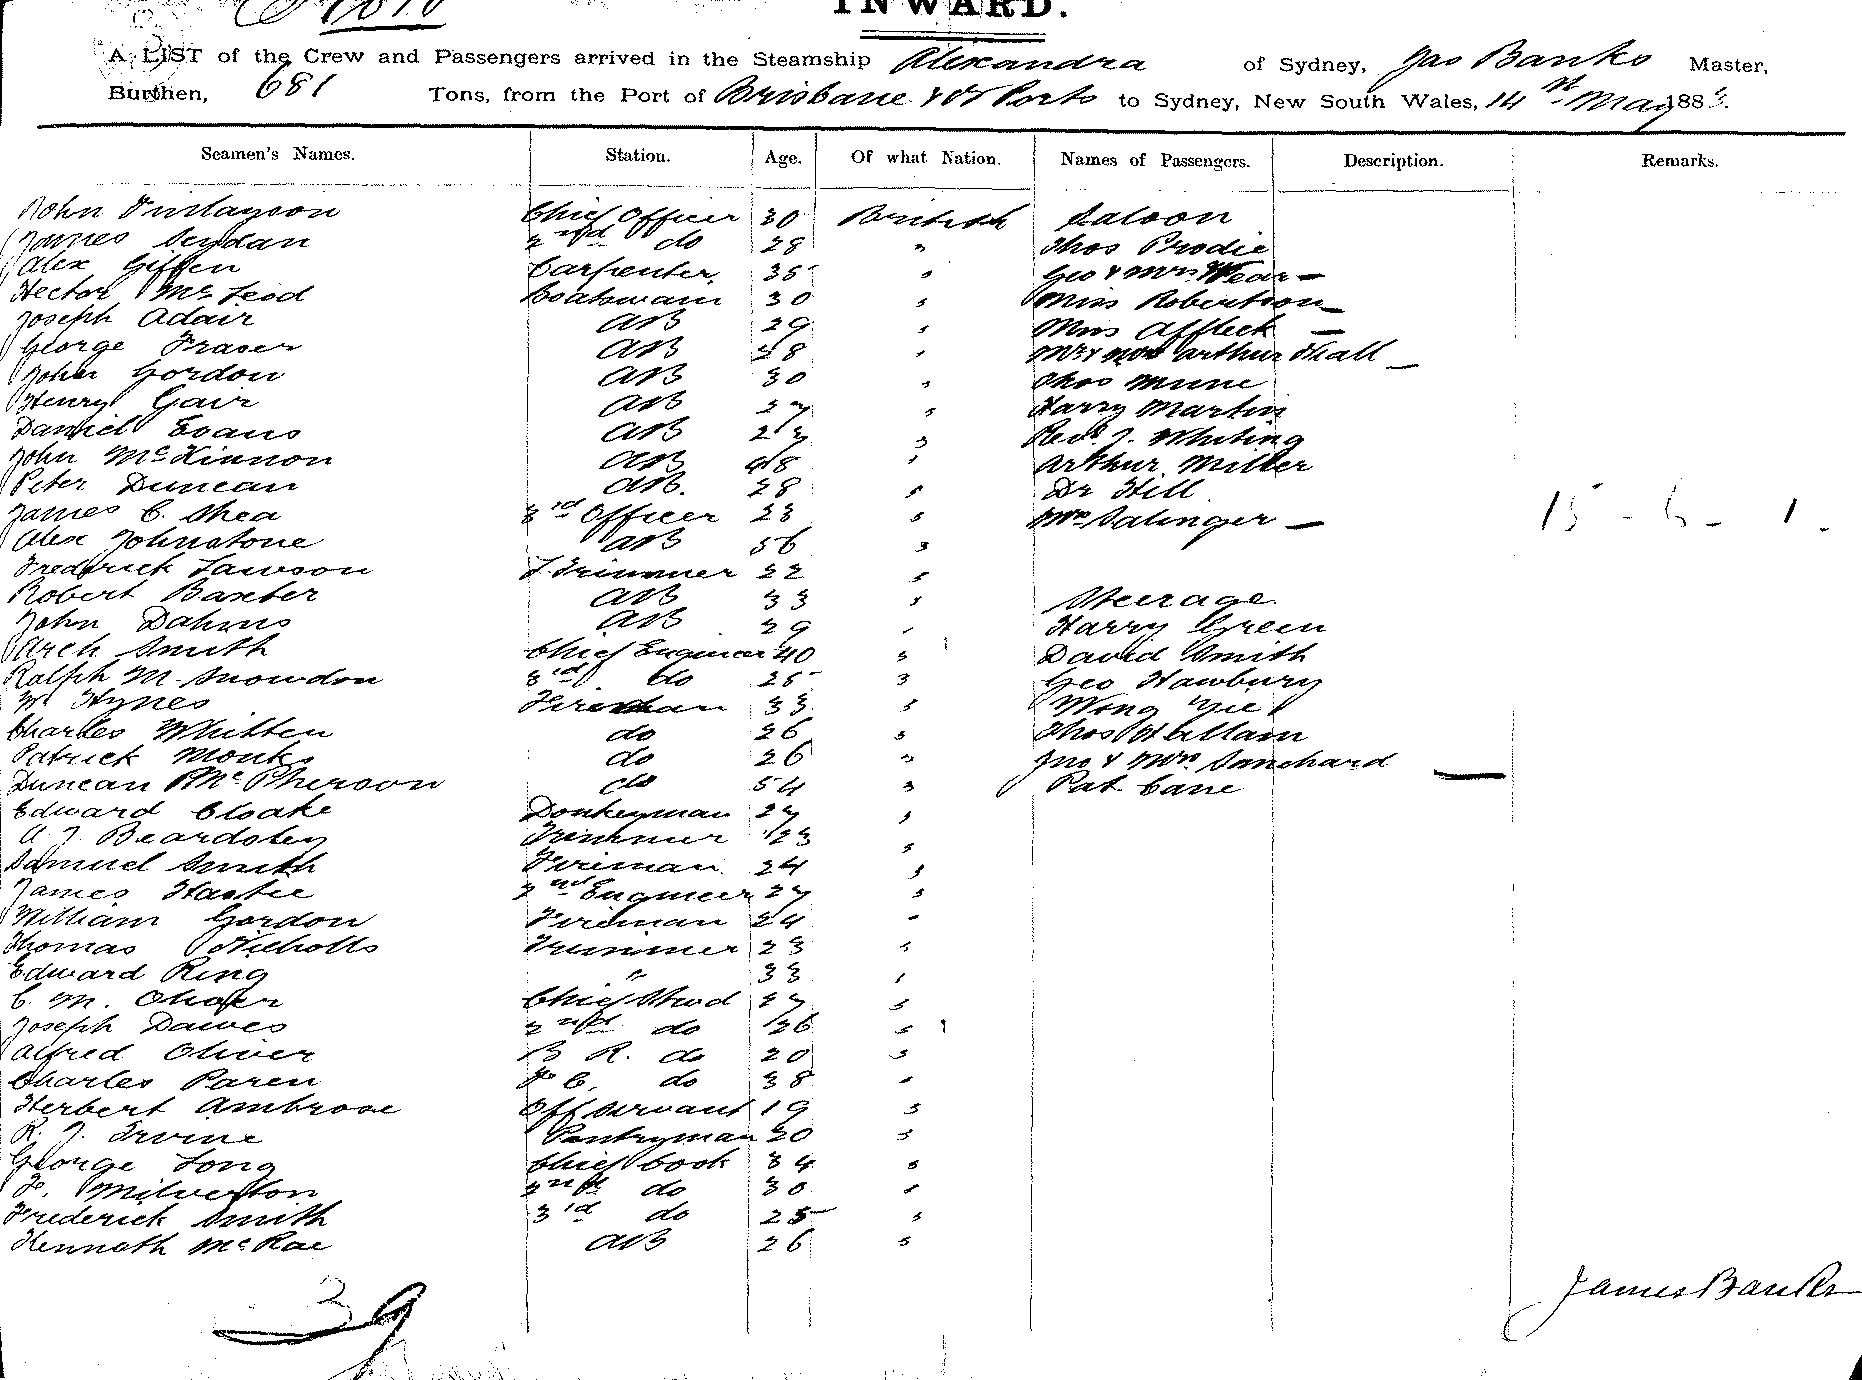 INWARD.
A LIST of the Crew and Passengers arrived in the Steamship Alexandra of Sydney, Jas Banks Master,
Burthen, 681 Tons, from the Port of Brisbane & or Ports to Sydney, New South Wales, 14 st May 188
Seamen's Names. Station. Age. Of what Nation. Names of Passengers. Description. Remarks.
John Finlayson Chief Officer 30 British Saloon
James Sendan 2nd do 28 " Thos Brodie
Alex Giffen Carpenter. 35 " Geo & Mrs Wear —
Hector McLeod Boatswain 30 " Miss Robertson —
Joseph Adair AB 29 " Mrs Affleck —
George Fraser AB 28 " Mr & Mrs Arthur Thall —
John Gordon AB 30 " Thos Mune
Henry Gair AB 27 " Harry Martin
Daniel Evans AB 23 " Revd J. Whiting
John McKinnon AB 48 " Arthur Miller
Peter Duncan AB. 28 " Dr Hill
James C. Shea 3rd Officer 23 " Mrs Salinger — 15 - 6 - 1.
Alex Johnstone AB 56 "
Frederick Lawson L. Trimmer 22 "
Robert Baxter AB 33 " Steerage.
John Dahms AB 29 " Harry Green
Arch Smith Chief Engineer 40 " David Smith
Ralph M. Snowdon 3rd do 25 " Geo Hawbury
Hynes Fireman 33 " Wong
Charles Whitten do 26 " Thos Hallam
Patrick Monks do 26 " Jno & Mrs Sanchard —
Duncan McPherson do 54 " Pat Cane
Edward Cloake Donkeyman 27 "
A J. Beardsley Trimmer 23 "
Samuel Smith Fireman. 24 "
James Hastie 2nd Engineer 27 "
William Gordon Fireman 24 "
Thomas Nicholls Trimmer 23 "
Edward Ring " 33 "
C. M. Oliver Chief Stwd 27 "
Joseph Dawes 2nd do 26 "
Alfred Oliver B R. do 20 "
Charles Paren F C. do 38 "
Herbert Ambrose Off servant 19 "
R. J. Irvine Pantryman 20 "
George Long Chief Cook 34 "
F. Milverton 2nd do 30 "
Frederick Smith 3rd do 25 "
Kenneth McRae AB 26 "
39
James Banks